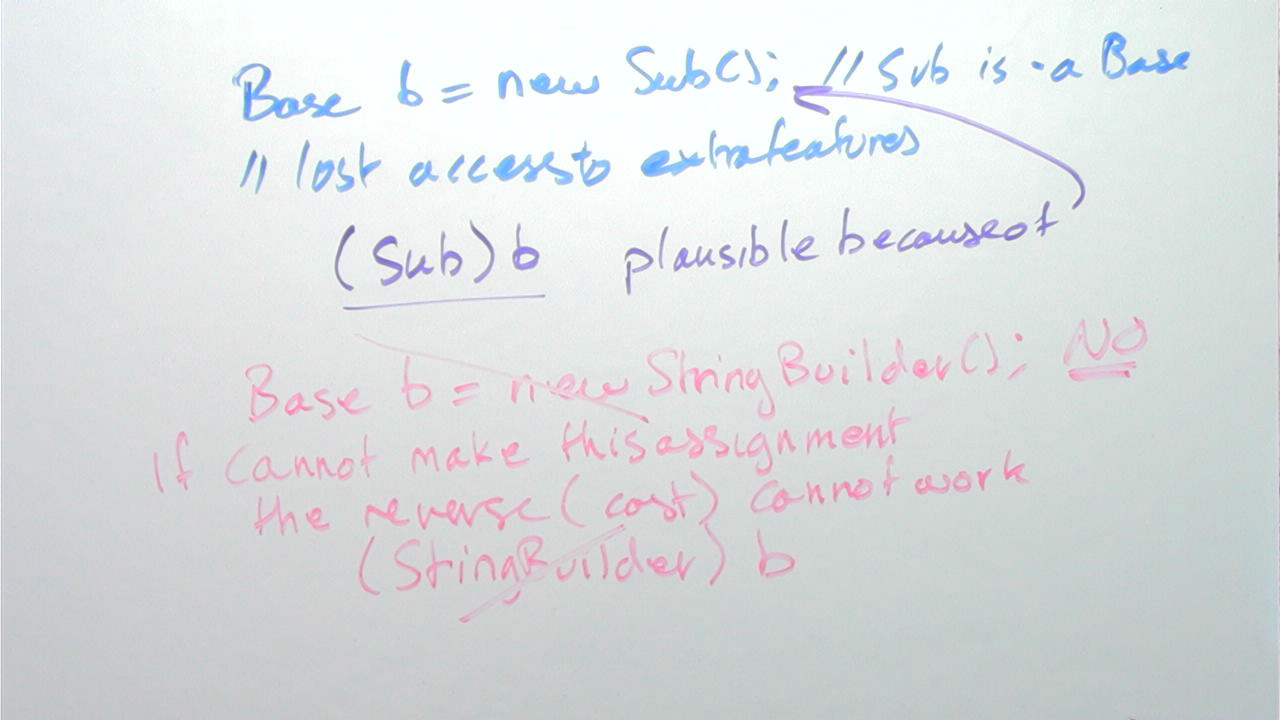 Base b = new Sub(); // Sub is-a Base
// lost access to extra features
(Sub) b plausible because of
Base b = new StringBuilder(); NO
If cannot make this assignment
the reverse (cast) cannot work
(StringBuilder) b